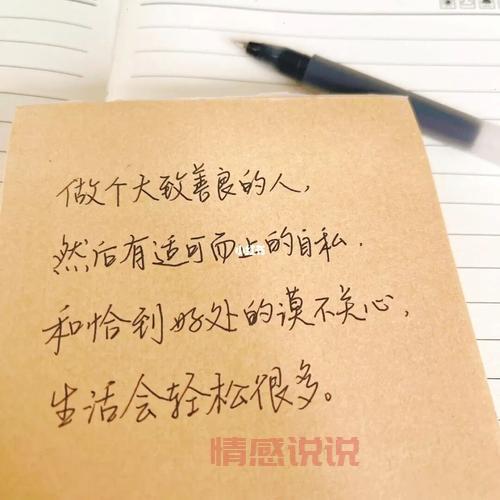 做个大致善良的人，
然后有适可而止的自私．
和恰到好处的漠不关心，
生活会轻松很多。
情感说说